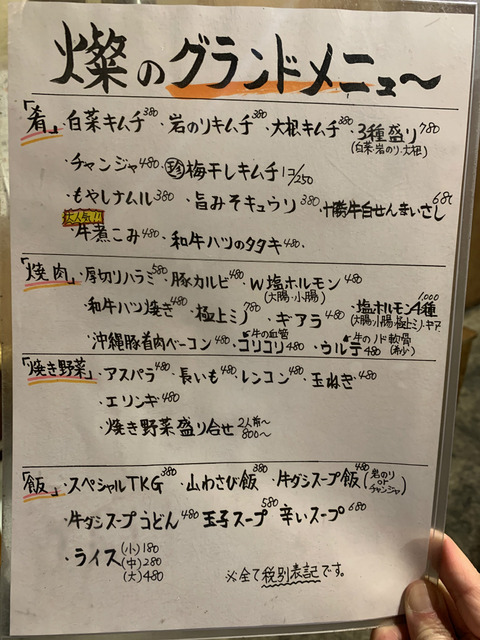 燦のグランドメニュ〜
「肴」・白菜キムチ380 ・岩のりキムチ380 ・大根キムチ380 ・3種盛り780
(白菜・岩のり・大根)
・チャンジャ480 ・㊩梅干しキムチ1コ/250
・もやしナムル380 ・旨みそキュウリ380 ・十勝牛白せんまいさし680
大人気!!
・牛煮こみ480 ・和牛ハツのタタキ480
「焼肉」・厚切りハラミ580 ・豚カルビ480 ・W塩ホルモン480
(大腸・小腸)
・和牛ハツ焼き480 ・極上ミノ780 ・ギアラ480 ・塩ホルモン4種1,000
(大腸・小腸・極上ミノ・ギア)
・沖縄豚首肉ベーコン480 ・コリコリ480 ・ウルテ480
牛の血管 牛のノド軟骨
(希少)
「焼き野菜」・アスパラ480 ・長いも480 ・レンコン480 ・玉ねぎ480
・エリンギ480
・焼き野菜盛り合せ 2人前〜
800〜
「飯」・スペシャルTKG380 ・山わさび飯380 ・牛ダシスープ飯480(岩のり or チャンジャ)
・牛ダシスープうどん480 玉子スープ580 辛いスープ680
・ライス(小)180
(中)280
(大)480
※全て税別表記です。